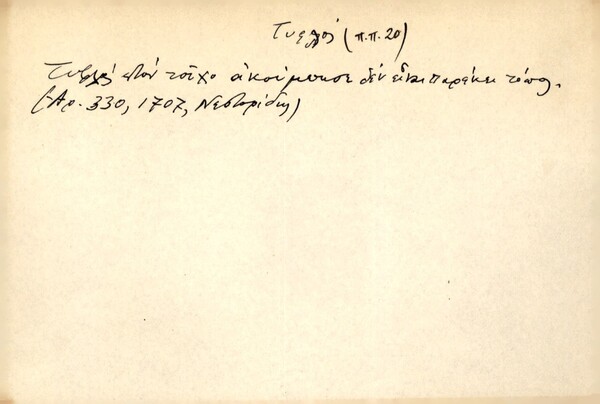 Τυφλός (π.π. 20)
Τυφλός στόν τοῖχο ἀκούμπησε δέν εἶναι παρέκει τόπος.
(Ἀρ. 330, 1707, Νεστορίδης)